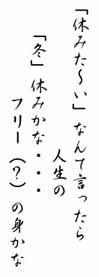 「休みた〜い」なんて言ったら
人生の
「冬」休みかな・・・
フリー（？）の身かな